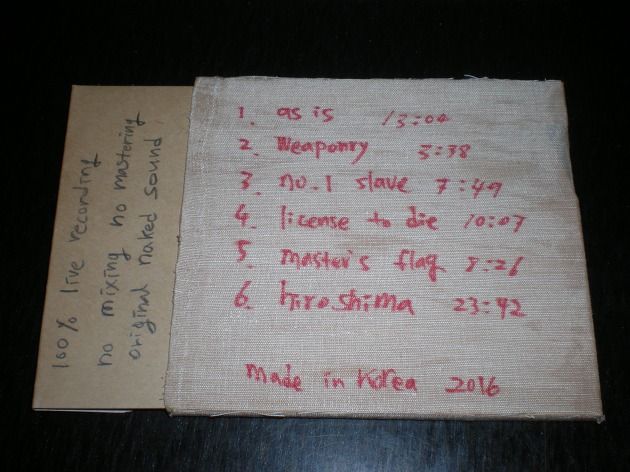 100% live recording
no mixing no mastering
original naked sound
1. as is 13:04
2. Weaponry 5:38
3. no.1 slave 7:49
4. license to die 10:07
5. master's flag 8:26
6. hiroshima 23:42
made in Korea 2016